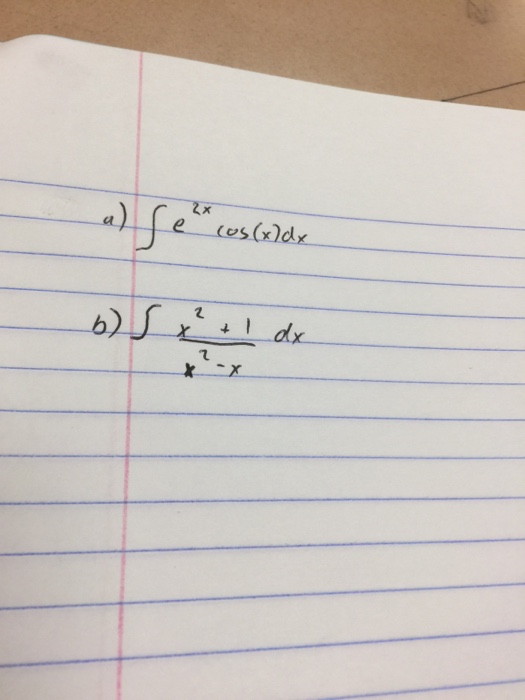 a) ∫ e^{2x} cos(x)dx
b) ∫ \frac{x^2 + 1}{x^2 - x} dx